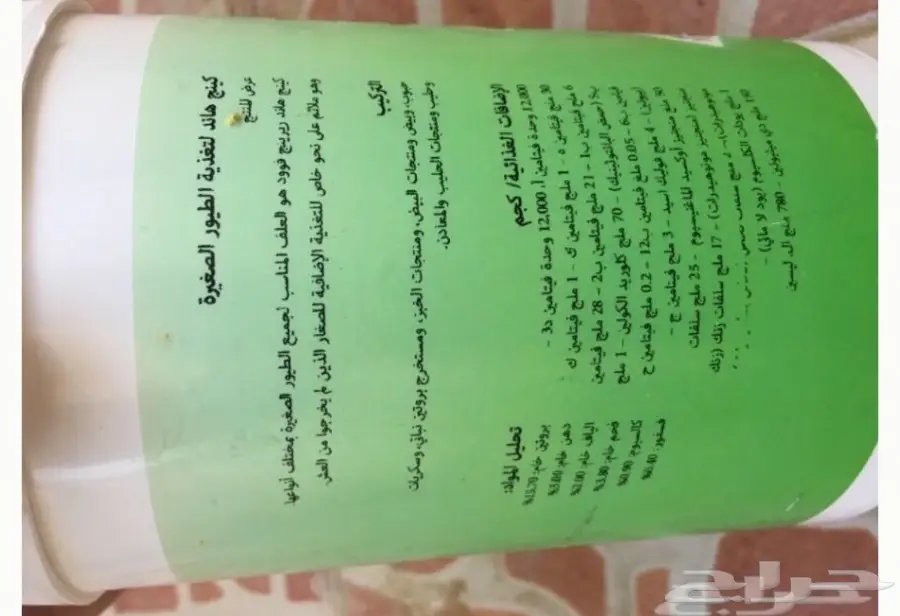 كينج هاند لتغذية الطيور الصغيرة
عرض المنتج
كينج هاند ريرينج فوود هو العلف المناسب لجميع الطيور الصغيرة بمختلف أنواعها
وهو ملائم على نحو خاص للتغذية الإضافية للصغار الذين لم يخرجوا من العش.
التركيب
حبوب، وبيض ومنتجات البيض، ومنتجات الخبز، ومستخرج بروتين نباتي، وسكريات
وحليب ومنتجات الحليب والمعادن.
الإضافات الغذائية/ كجم
12,000 وحدة فيتامين أ، 12,000 وحدة فيتامين د3 -
30 ملج فيتامين ه - 1 ملج فيتامين ك - 1 ملج فيتامين ك
6 ملج فيتامين ب1 - 21 ملج فيتامين ب2 - 28 ملج فيتامين
(حمض البانتوثينيك) - 70 ملج كلوريد الكولين - 1 ملج
فيتامين ب6 - 0.05 ملج فيتامين ب12 - 0.2 ملج فيتامين ح
- 4 ملج فوليك أسيد - 3 ملج فيتامين ج -
90 ملج منجنيز أوكسيد الماغنيسيوم - 25 ملج سلفات
منجنيز (منجنيز مونوهيدرات) - 17 ملج سلفات زنك (زنك
ملج يودات الكالسيوم (يود لا مائي) -
190 ملج دي ميثيونين - 780 ملج ال ليسين
تحليل المواد:
بروتين خام: 15.70%
دهن خام: 3.00%
الياف خام: 2.00%
فحم خام: 3.80%
كالسيوم: 0.90%
فسفور: 0.40%
حراج